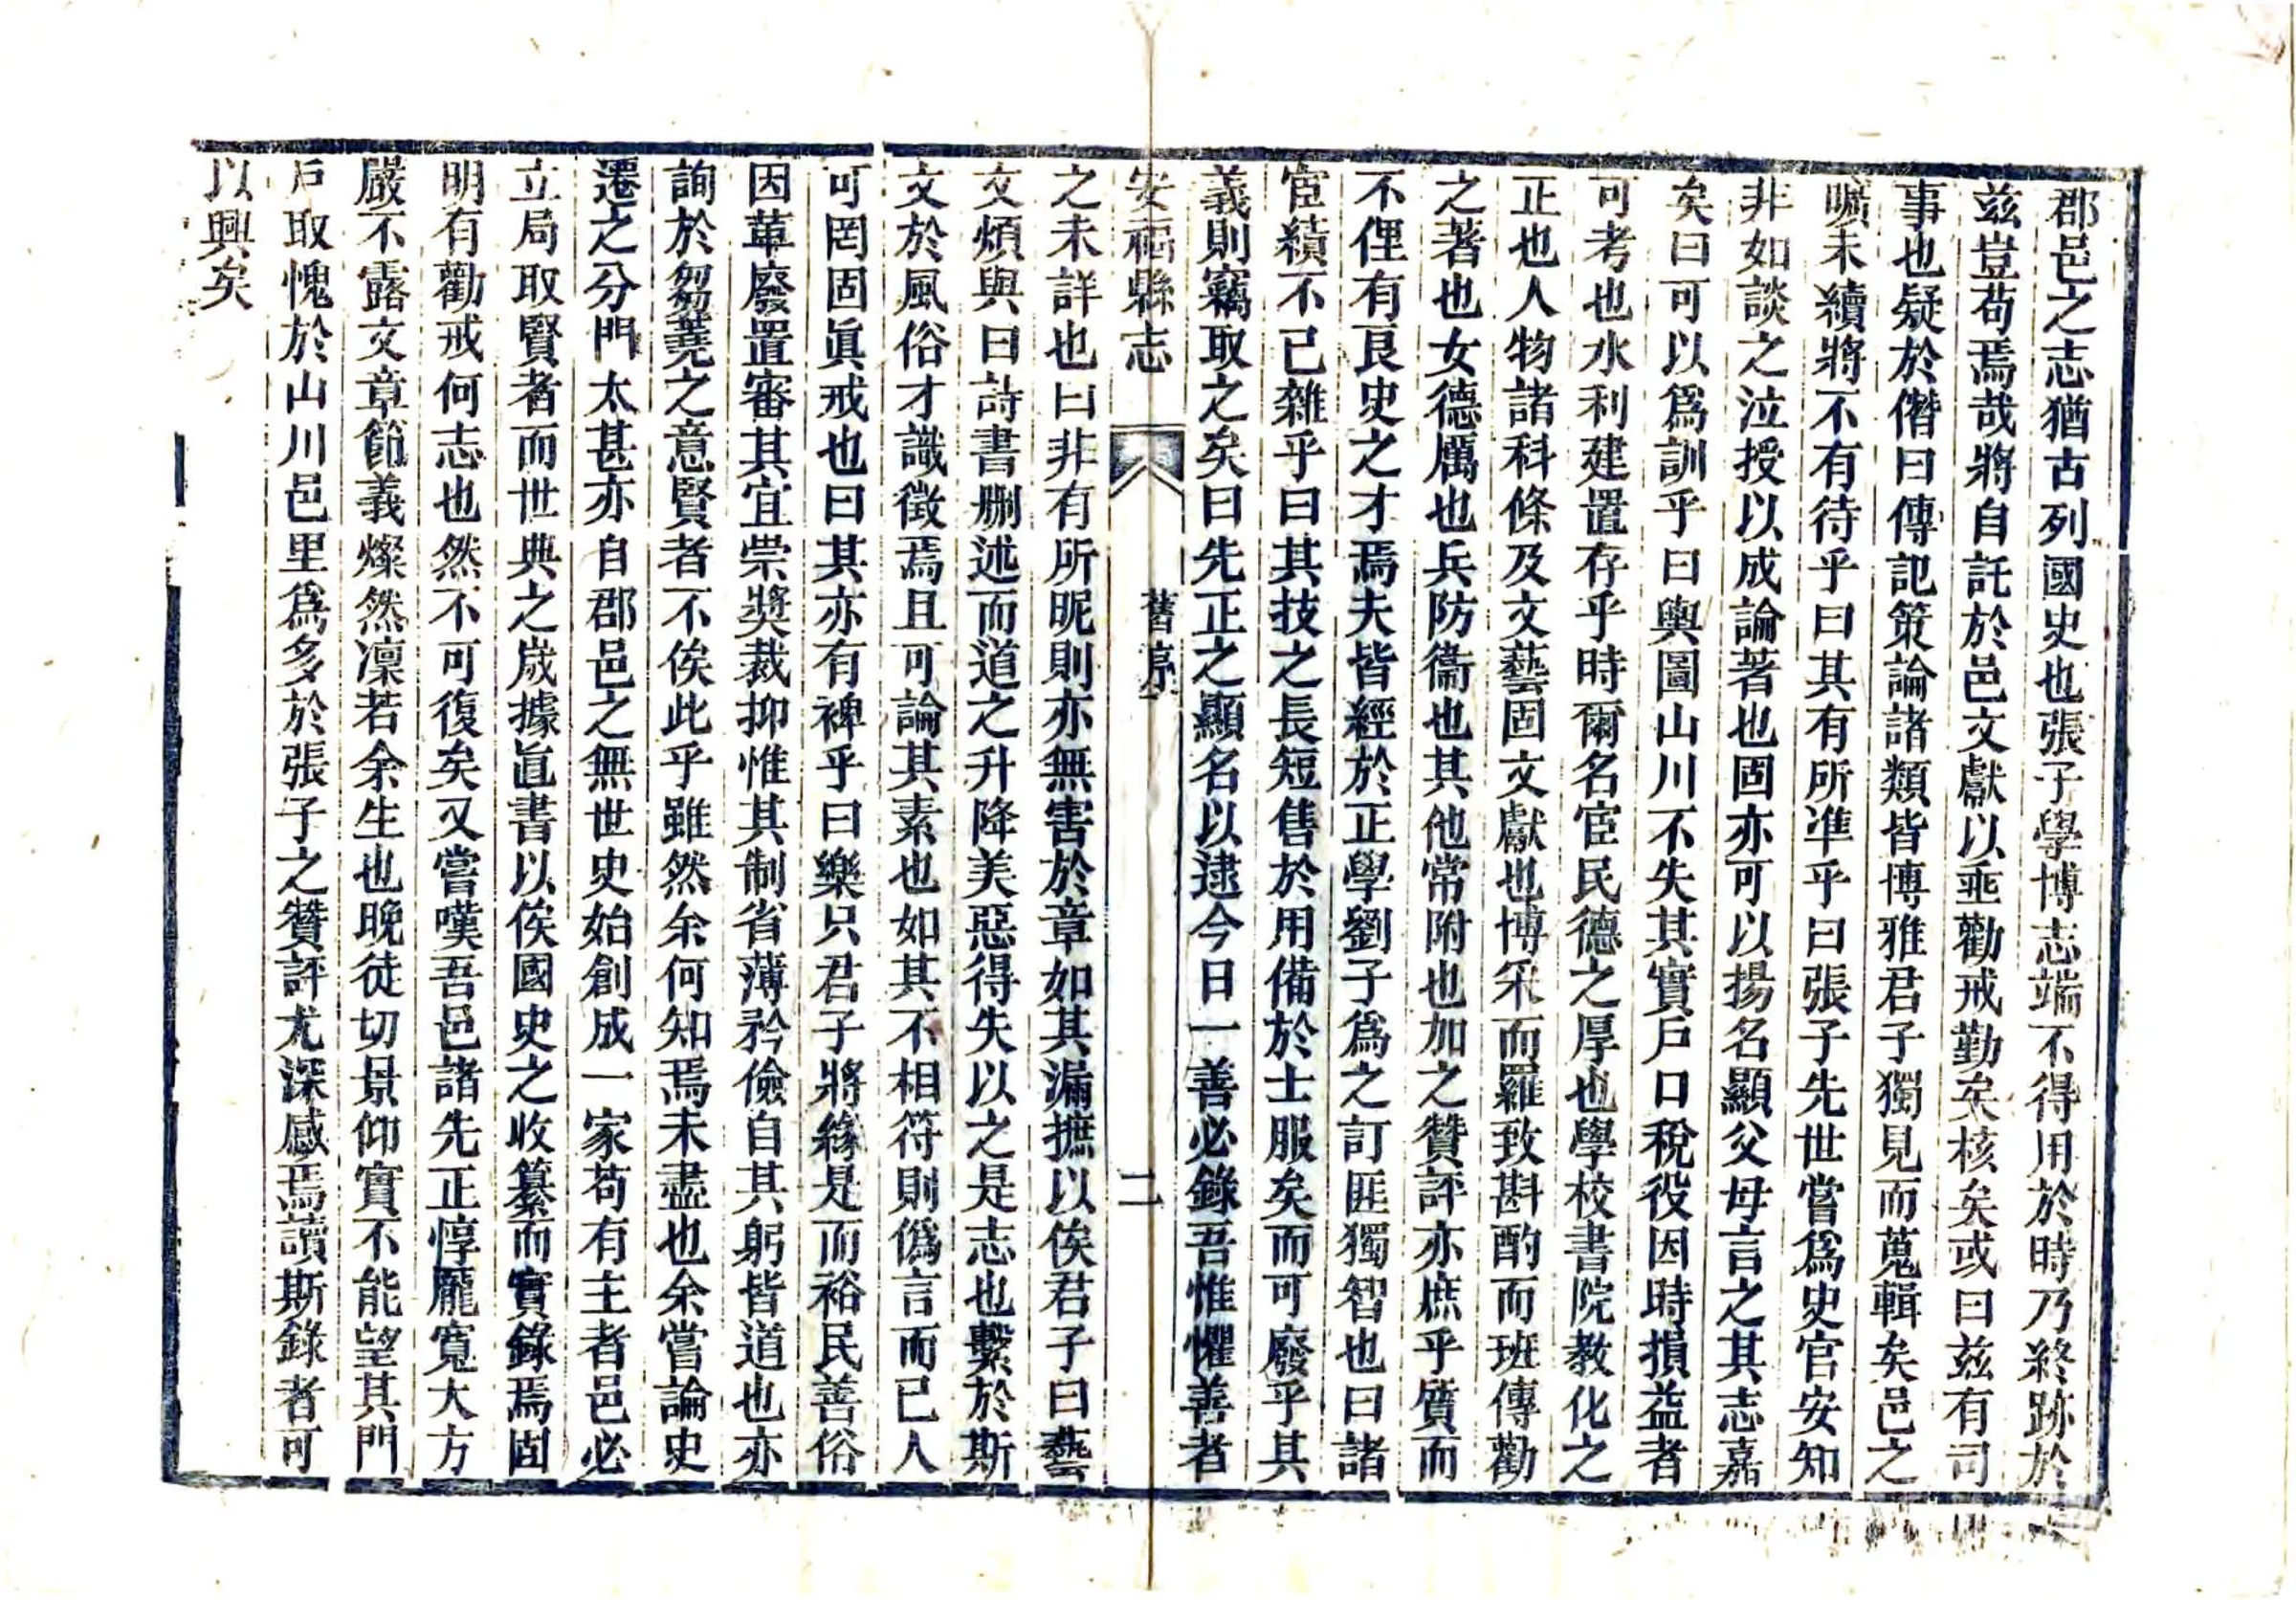 郡邑之志猶古列國史也張子學博志端不得用於時乃終跡於
兹豈苟焉哉將自託於邑文獻以垂勸戒勤矣核矣或曰兹有司
事也疑於僭曰傳記策論諸類皆博雅君子獨見而蒐輯矣邑之
曠未續將不有待乎曰其有所準乎曰張子先世嘗爲史官安知
非如談之泣授以成論著也固亦可以揚名顯父母言之其志嘉
矣曰可以爲訓乎曰輿圖山川不失其實戶口稅役因時損益者
可考也水利建置存乎時爾名宦民德之厚也學校書院教化之
正也人物諸科條及文藝固文獻也博采而羅致斟酌而班傳勸
之著也女德厲也兵防衞也其他常附也加之贊評亦庶乎質而
不俚有良史之才焉夫皆經於正學劉子爲之訂匪獨智也曰諸
宦績不已雜乎曰其技之長短售於用備於士服矣而可廢乎其
義則竊取之矣曰先正之顯名以逮今日一善必錄吾惟懼善者
安福縣志 舊序 二
之未詳也曰非有所昵則亦無害於章如其漏摭以俟君子曰藝
文煩與曰詩書刪述而道之升降美惡得失以之是志也繫於斯
文於風俗才識徵焉且可論其素也如其不相符則僞言而已人
可罔固眞戒也曰其亦有裨乎曰樂只君子將緣是而裕民善俗
因革廢置審其宜崇獎裁抑惟其制省薄矜儉自其躬皆道也亦
詢於芻蕘之意賢者不俟此乎雖然余何知焉未盡也余嘗論史
遷之分門太甚亦自郡邑之無世史始創成一家苟有主者邑必
立局取賢者而世典之嵗據直書以俟國史之收纂而實錄焉固
明有勸戒何志也然不可復矣又嘗嘆吾邑諸先正惇龎寬大方
嚴不露文章節義燦然凜若余生也晚徒切景仰實不能望其門
戶取愧於山川邑里爲多於張子之贊評尤深感焉讀斯錄者可
以興矣